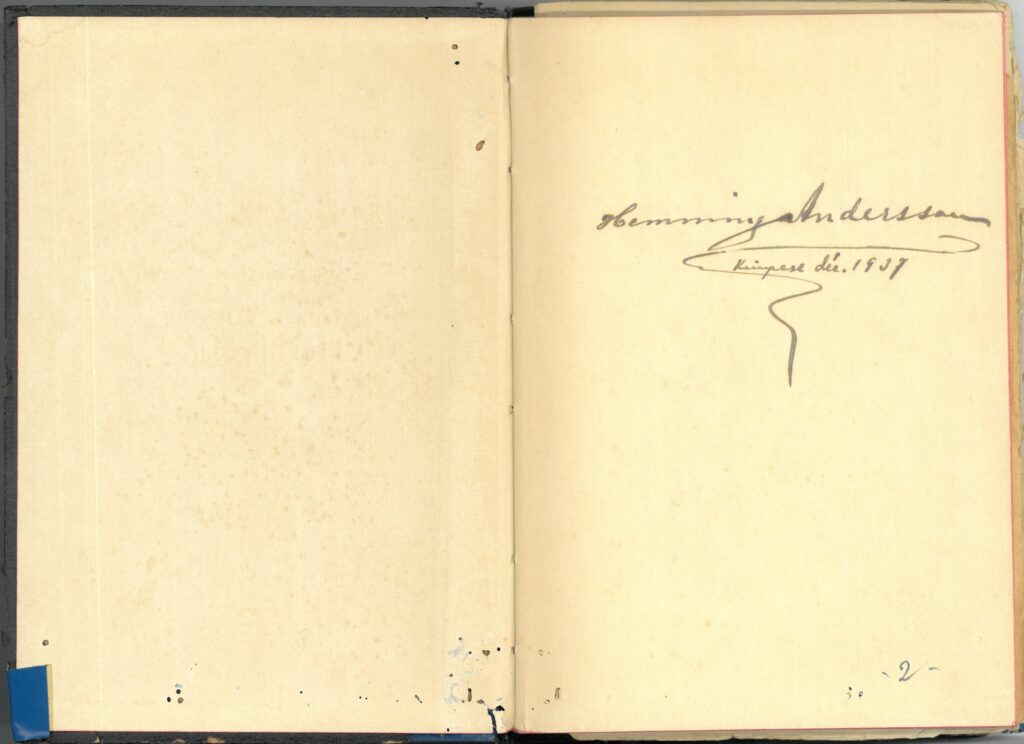 Hemming Andersson
Kimpese déc. 1937
- 2 -